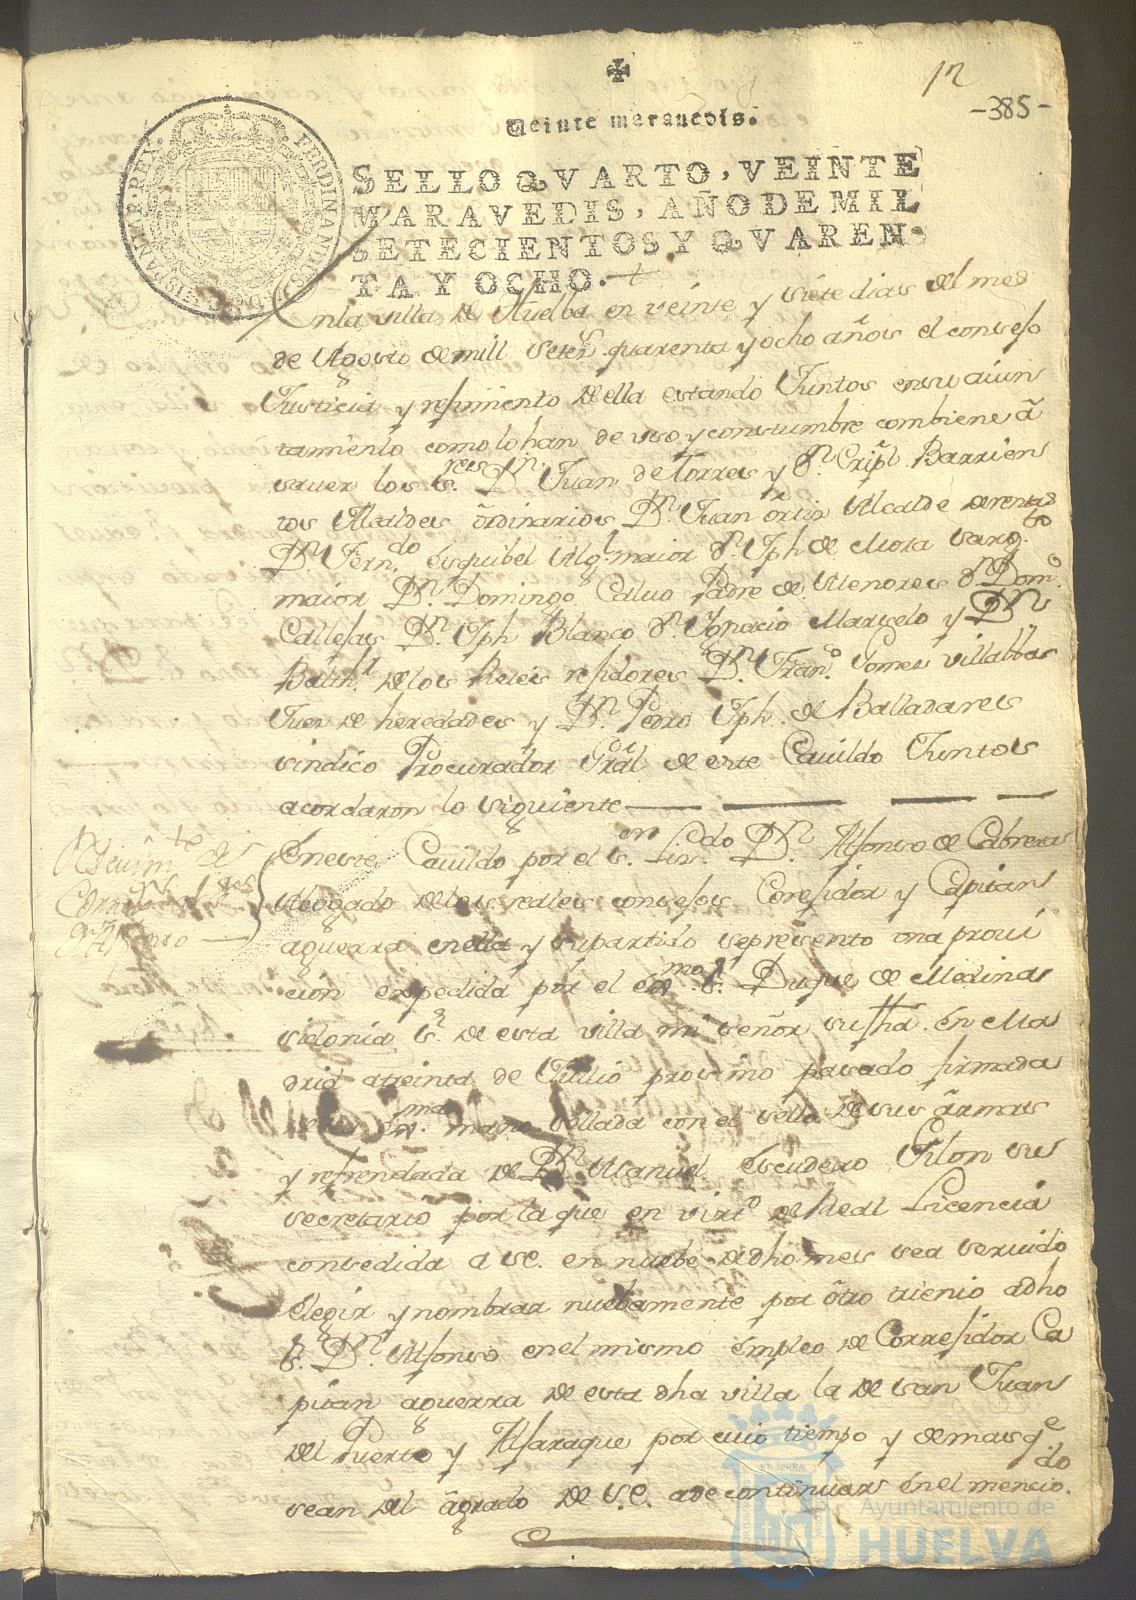 12
-385-
Veinte maravedis.
SELLO QVARTO, VEINTE
MARAVEDIS, AÑO DE MIL
SETECIENTOS Y QVAREN-
TA Y OCHO.
FERDINANDUS VI D G HISPANIAR REX
Enla villa de Huelba en veinte y siete dias del mes
de Agosto de mill setes. quarenta y ocho años el consejo
Justicia y resimiento de ella estando Juntos ensu aiun
tamiento como lo han de uso y constumbre combiene â
saver los Sres. Dn. Juan de Torres y Dn. Cripl. Barrien
tos Alcaldes ôrdinarios Dn. Juan ôrtis Alcalde de renta
Dn. Fern.do esquibel Alg.l maior Dn. Jph. de Mora sarg.to
maior Dn. Domingo Calvo Padre de Menores Dn. Dom.o
Callejas Dn. Jph Blanco Dn. Ygnacio Marselo y Dn.
Balth.r de los Reies residores Dn. Fran.o Gomes villalbas
Juez de heredades y Dn. Pedro Jph. de Balladares
sindico Procurador Gral de este Cavildo Juntos
acordaron lo siguiente
Enese Cavildo por el Sor. Liz.do Dn. Alfonso de Cabrera
Abogado delos reales consejos Coresidor y Capitan
aguerra enella y supartido sepresento una provi
cion expedida por el êxmo. Sr. Duque de Medina
sidonia Sr. de esta villa mi señor sufha. ên Ma
drid atreinta de Jullio procsimo pasado firmada
de su êxma. mano sellada con el sello de sus ârmas
y refrendada de Dn. Manuel escudero Gilon su
secretario por la que en virt.o de Real Licencia
consedida a SE. en nuebe de dho mes sea servido
êlegir y nombrar nuebamente por ôtro trienio adho
Sr. Dn. Alfonso en el mismo êmpleo de Corresidor Ca
pitan aguerra de esta dha villa la de san Juan
del Puerto y Alfaraque por cuio tiempo y demas q.e
sean del âgrado de S.E. ade continuar ên el mencio.do
Ayuntamiento de
HUELVA